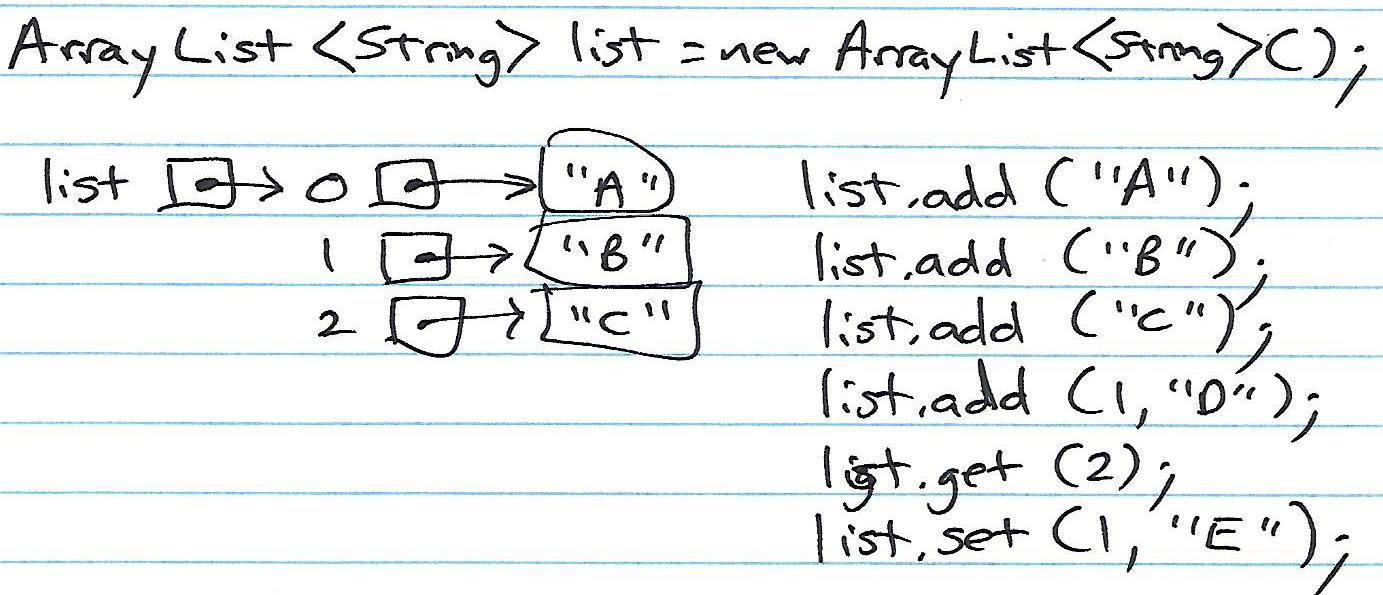 ArrayList <String> list = new ArrayList <String>();
list 0 "A" list.add ("A");
1 "B" list.add ("B");
2 "C" list.add ("C");
list.add (1, "D");
list.get (2);
list.set (1, "E");